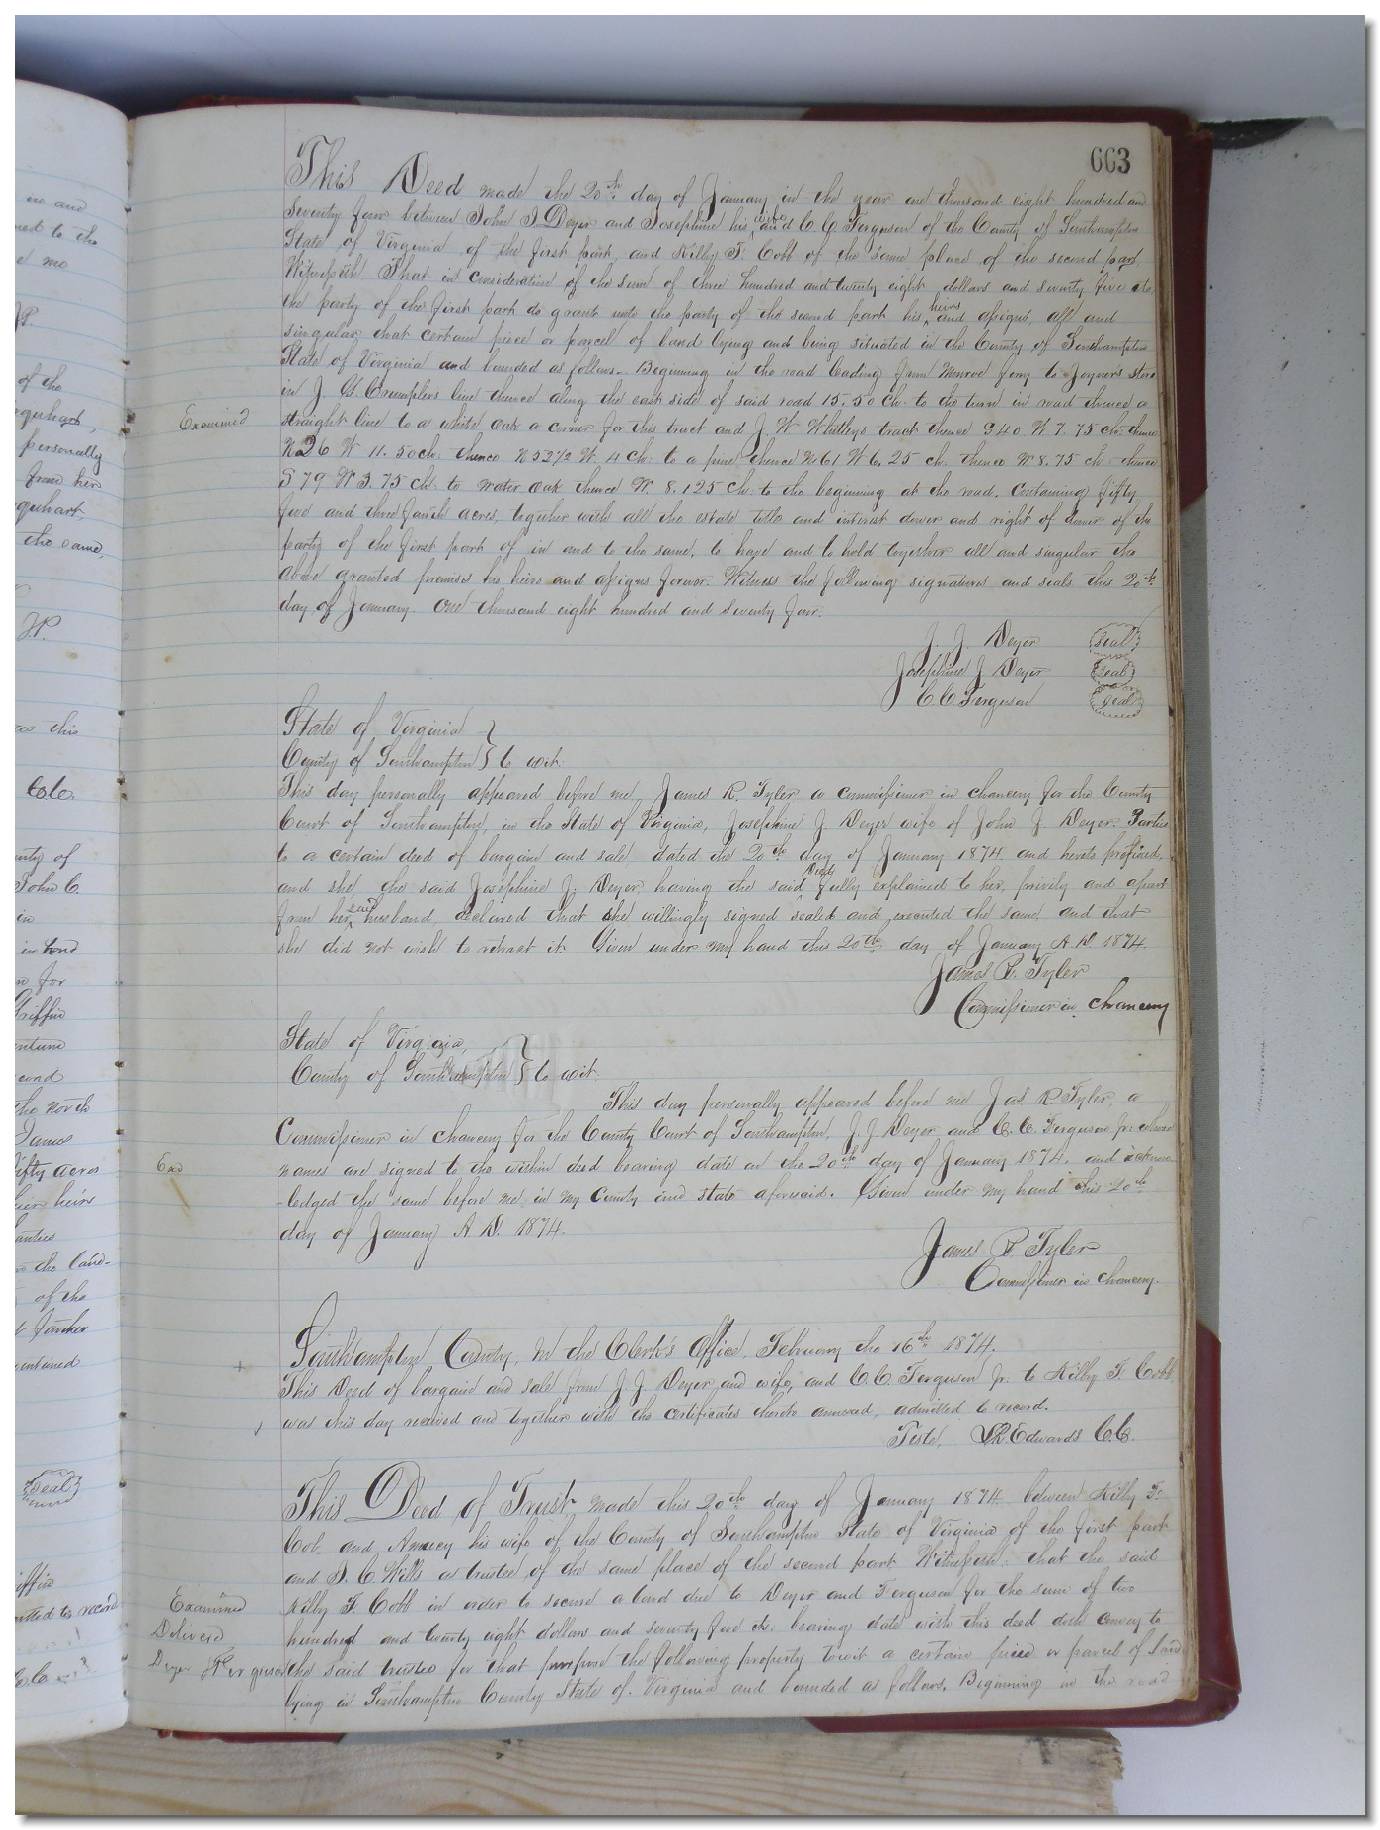 663
This Deed made the 20th day of January in the year one thousand eight hundred and
Seventy four between John J. Deyer and Josephine his wife and C. C. Ferguson of the County of Southampton
State of Virginia of the first part, and Kilby T. Cobb of the same place of the second part
Witnesseth That in consideration of the sum of three hundred and twenty eight dollars and seventy five cts
the party of the first part do grant unto the party of the second part his heirs and assigns, all and
singular that certain piece or parcel of land lying and being situated in the County of Southampton
State of Virginia and bounded as follows. Beginning in the road leading from Monroe ferry to Joyner's store
in J. G. Crumplers line thence along the east side of said road 15.50 ch. to the turn in road thence a
Examined
straight line to a white oak a corner for this tract and J. W. Whitleys tract thence S 40 W 7.75 ch. thence
N 26 W 11.50 ch. thence N 52 1/2 W. 4 ch. to a pine thence N 61 W 6.25 ch. thence W 8.75 ch. thence
S 79 W 3.75 ch. to water oak thence W. 8.125 ch. to the beginning at the road. Containing fifty
five and three fourth acres, together with all the estate title and interest dower and right of dower of the
party of the first part of in and to the same, to have and to hold together all and singular the
above granted premises his heirs and assigns forever. Witness the following signatures and seals this 20th
day of January. One thousand eight hundred and seventy four.
J. J. Deyer seal
Josephine J Deyer seal
C. C. Ferguson seal
State of Virginia
County of Southampton } to wit:
This day personally appeared before me, James R. Tyler a commissioner in chancery for the County
Court of Southampton, in the State of Virginia, Josephine J. Deyer wife of John J. Deyer. Parties
to a certain deed of bargain and sale dated the 20th day of January 1874 and hereto
and she, the said Josephine J. Deyer, having the said Deed fully explained to her, privily and apart
from her said husband, declared that she willingly signed sealed and executed the same, and that
she did not wish to retract it. Given under my hand this 20th day of January A. D. 1874.
James R. Tyler
Commissioner in chancery
State of Virginia,
County of Southampton } to wit:
This day personally appeared before me Jas R Tyler, a
Commissioner in chancery for the County Court of Southampton, J. J Deyer and C. C. Ferguson Jr. whose
Exd
names are signed to the within deed bearing date on the 20th day of January 1874, and acknow
-ledged the same before me in my County and state aforesaid. Given under my hand this 20th
day of January A D. 1874.
James R. Tyler
Commissioner in chancery.
Southampton County, In the Clerk's Office, February the 16th 1874.
This Deed of bargain and sale from J. J. Deyer and wife, and C. C. Ferguson Jr. to Kilby T. Cobb
was this day received and together with the certificates thereto annexed, admitted to record.
Teste, L R Edwards C. C.
This Deed of Trust made this 20th day of January 1874 between Kilby T.
Cob and his wife of the County of Southampton State of Virginia of the first part
and J. C. Wills as trustee of the same place of the second part Witnesseth: that the said
Examined
Kilby T. Cobb in order to secure a bond due to Deyer and Ferguson for the sum of two
Delivered
hundred and twenty eight dollars and seventy five cts. bearing date with this deed doth convey to
Deyer & Ferguson
the said trustee for that purpose the following property towit a certain piece or parcel of land
lying in Southampton County State of Virginia and bounded as follows. Beginning in the road